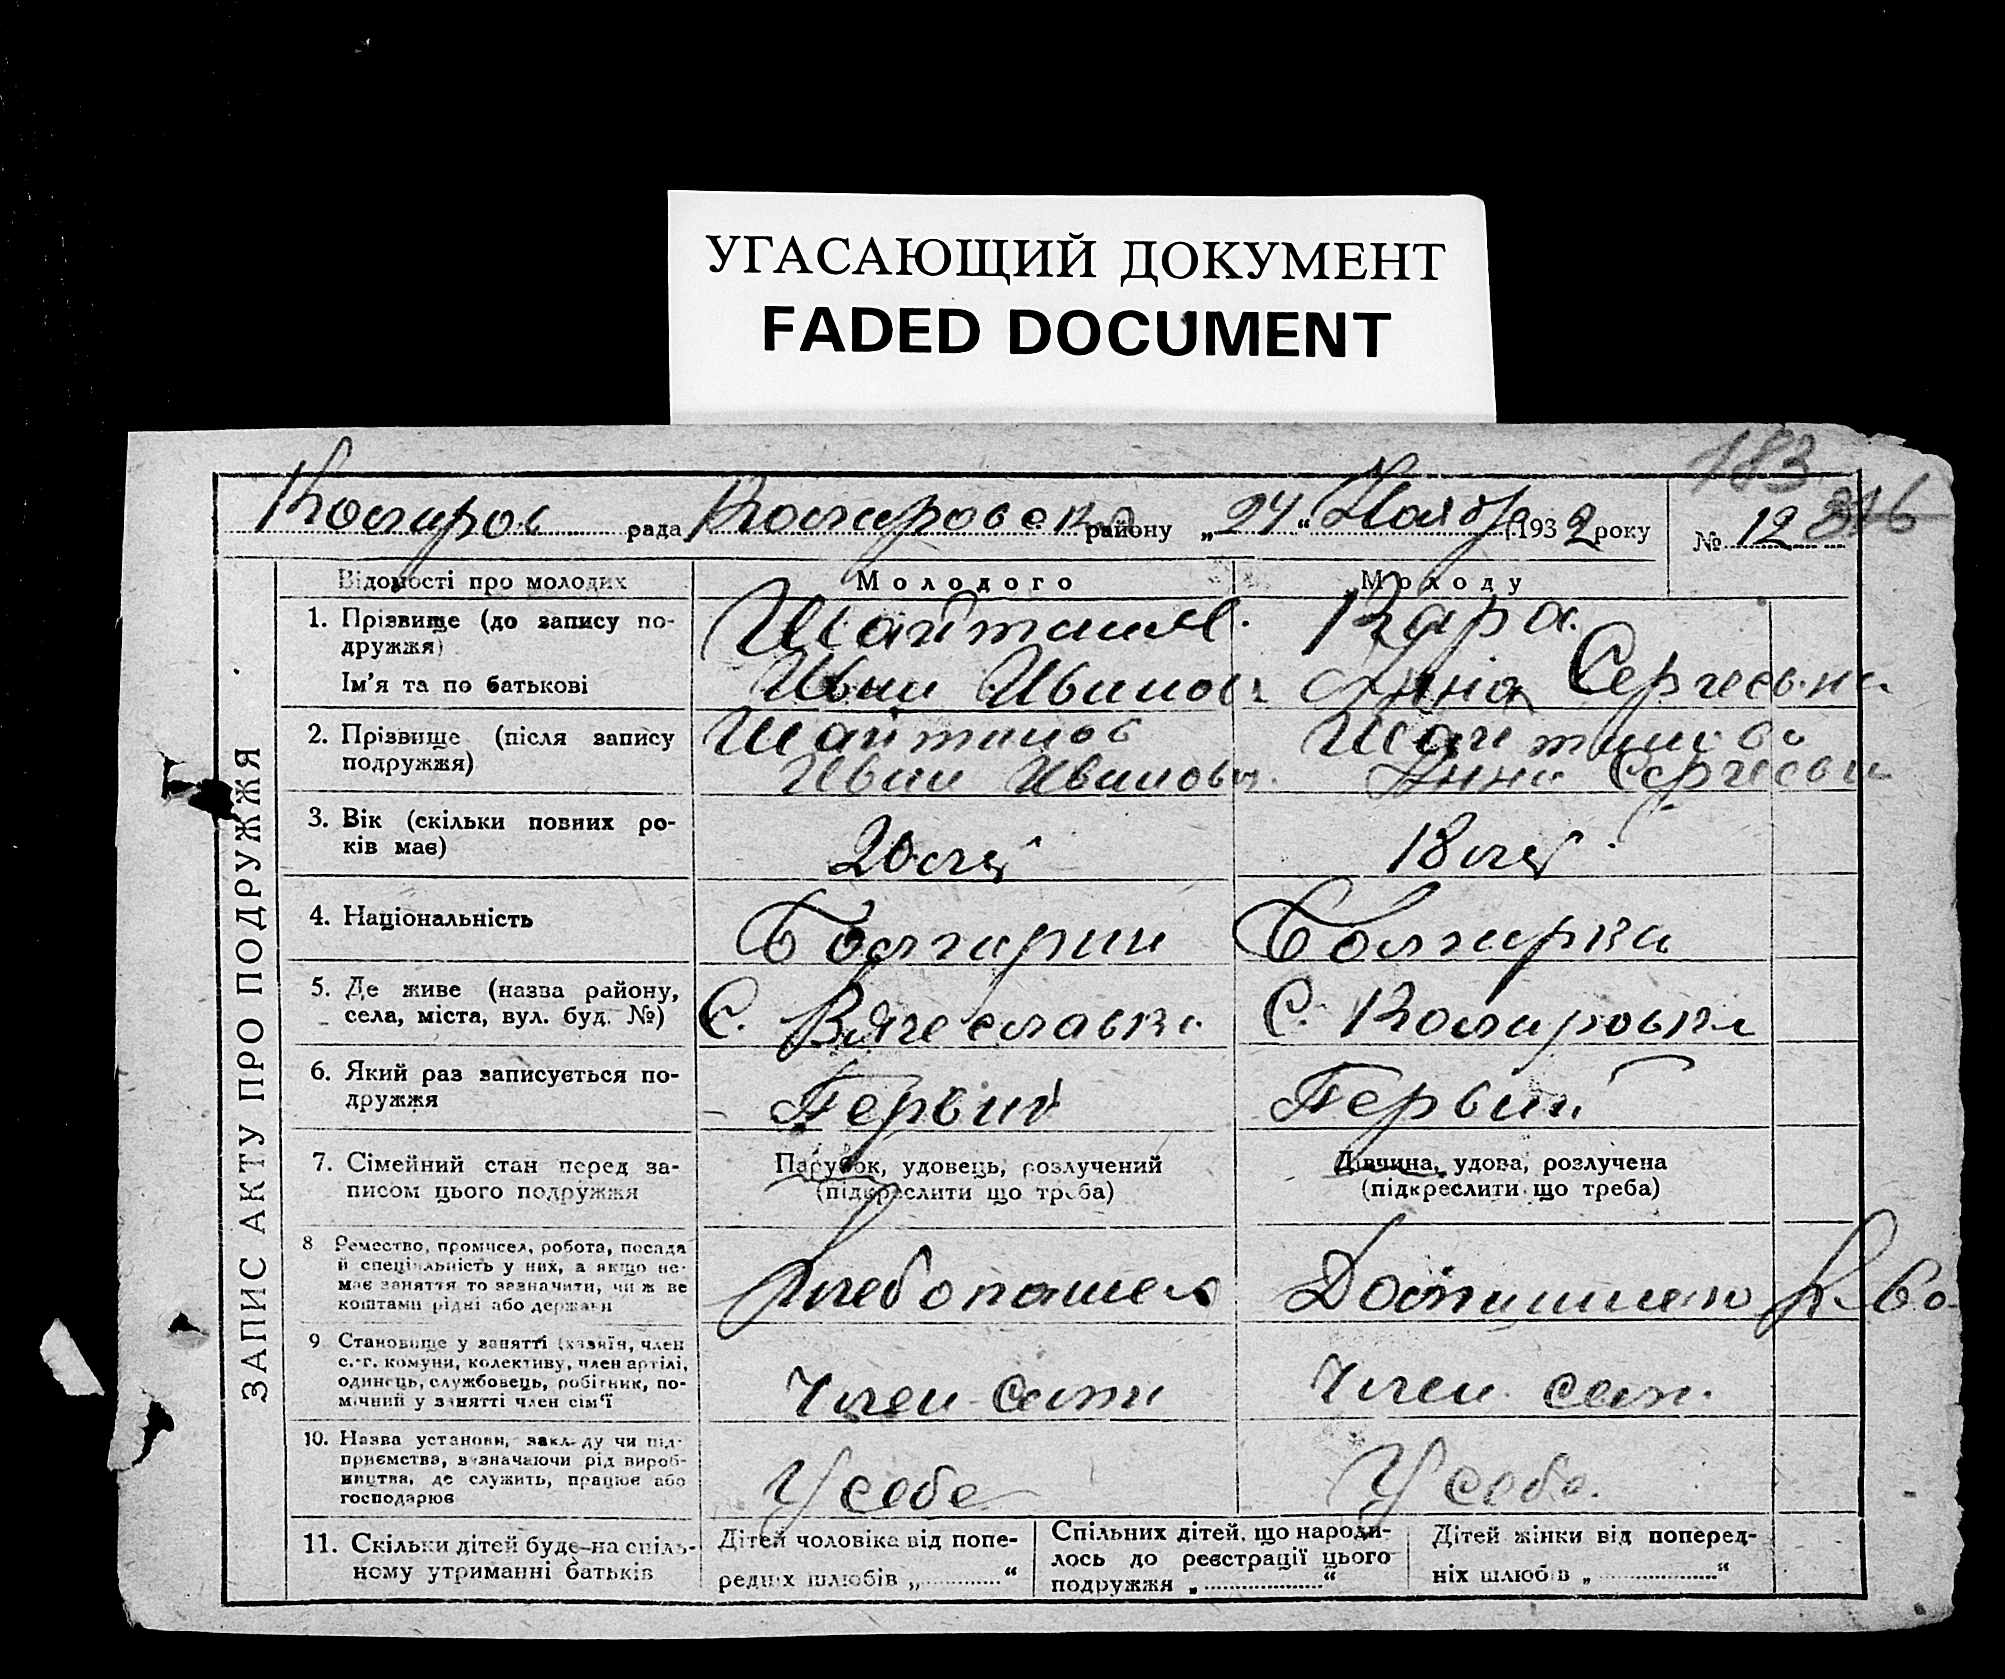 УГАСАЮЩИЙ ДОКУМЕНТ
FADED DOCUMENT
183
Коларов рада Коларовско району „24“ Ноябр 1932 року № 12 316
ЗАПИС АКТУ ПРО ПОДРУЖЖЯ
Відомості про молодих Молодого Молоду
1. Прізвище (до запису по-
дружжя)
Шайтанов. Кара.
Ім'я та по батькові
Иван Иванов Анна Сергеевна
2. Прізвище (після запису
подружжя)
Шайтанов Шайтанова
Иван Иванович Анна Сергеевн
3. Вік (скільки повних ро-
ків має)
20 лет 18 лет
4. Національність
Болгарин Болгарка
5. Де живе (назва району,
села, міста, вул. буд. №)
С. Вячеславка С. Коларовка
6. Який раз записується по-
дружжя
Первый Первый
7. Сімейний стан перед за-
писом цього подружжя
Парубок, удовець, розлучений
(підкреслити що треба)
Дівчина, удова, розлучена
(підкреслити що треба)
8 Ремество, промисел, робота, посада
й спеціяльність у них, а якщо не-
має заняття то зазначити, чи ж ве
коштами рідні або держави
Хлебопашец
9. Становище у занятті (хазяїн, член
с.-г. комуни, колективу, член артілі,
одинець, службовець, робітник, по-
мічний у занятті член сім'ї
Член семи Член сем.
10. Назва установи, закладу чи під-
приємства, зазначаючи рід вироб-
ництва, де служить, працює або
господарює
У себе У себе.
11. Скільки дітей буде на спіль-
ному утриманні батьків
Дітей чоловіка від попе-
редніх шлюбів „ “
Спільних дітей, що народи-
лось до реєстрації цього
подружжя „ “
Дітей жінки від поперед-
ніх шлюбів „ “